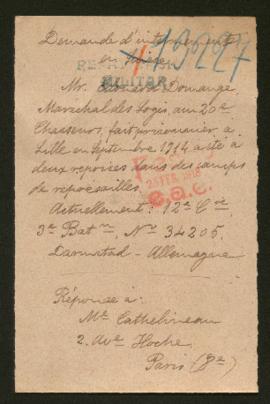 Demande d'internement
en Suisse
13227
MILITAR
Mr. Domange
Maréchal des Logis, au 20e
Chasseurs, fait prisonnier à
Lille en Septembre 1914 a été à
deux reprises dans des camps
de représailles.
Actuellement: 12e Cie
3e Bat on, No 34205.
Darmstad - Allemagne
Réponse à:
Me Cathelineau
2. Ave Hoche
Paris (8e)